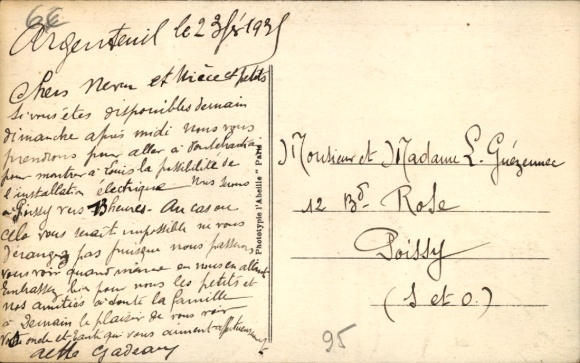 66
Argenteuil le 23 fév 1935
Chers Neveu et Nièce et petits
Si vous êtes disponibles demain
dimanche après midi nous vous
prendrons pour aller à
pour montrer à Louis la possibilité de
l'installation électrique Nous serons
à Poissy vers 13 heures - Au cas ou
cela vous serait impossible ne vous
dérangez pas puisque nous passerons
vous voir quand même en nous en allant
Embrassez bien pour nous les petits et
nos amitiés à toute la famille
à Demain le plaisir de vous voir
Votre oncle et tante qui vous aiment affectueusement
Phototypie l'Abeille" Paris
Monsieur et Madame L. Guézennec
12 Bd. Rose
Poissy
(S et O.)
95